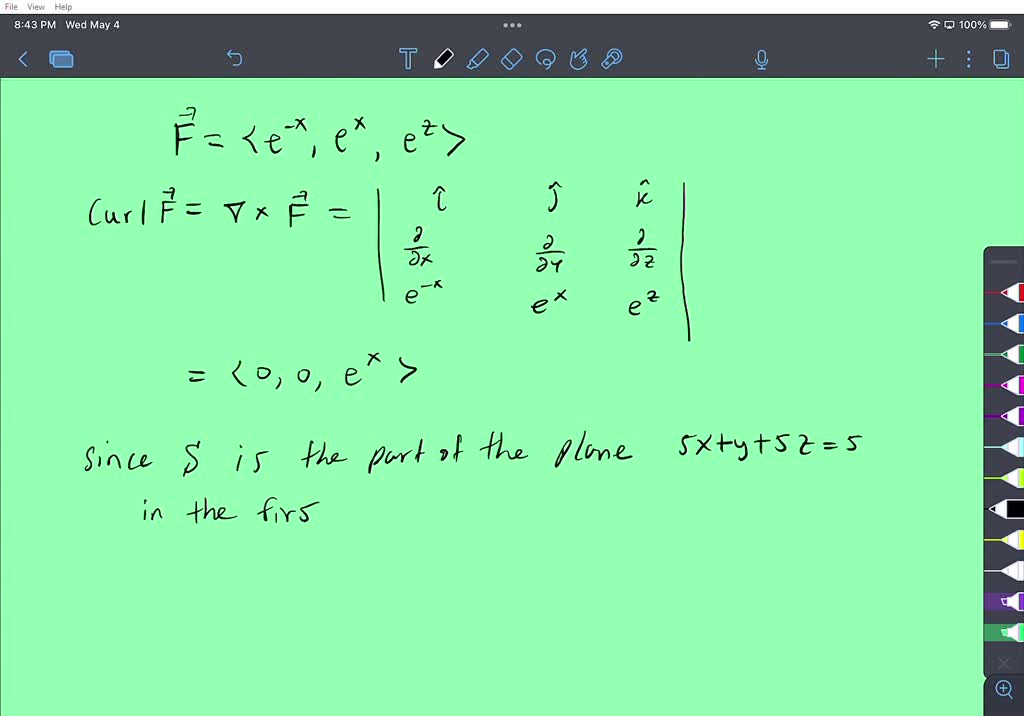 File View Help
8:43 PM Wed May 4
100%
T
F⃗ = <e^-x, e^x, e^z>
Curl F⃗ = ∇ × F⃗ = | î ĵ k̂ |
∂/∂x ∂/∂y ∂/∂z
e^-x e^x e^z
= <0, 0, e^x>
Since S is the part of the plane 5x+y+5z=5
in the firs